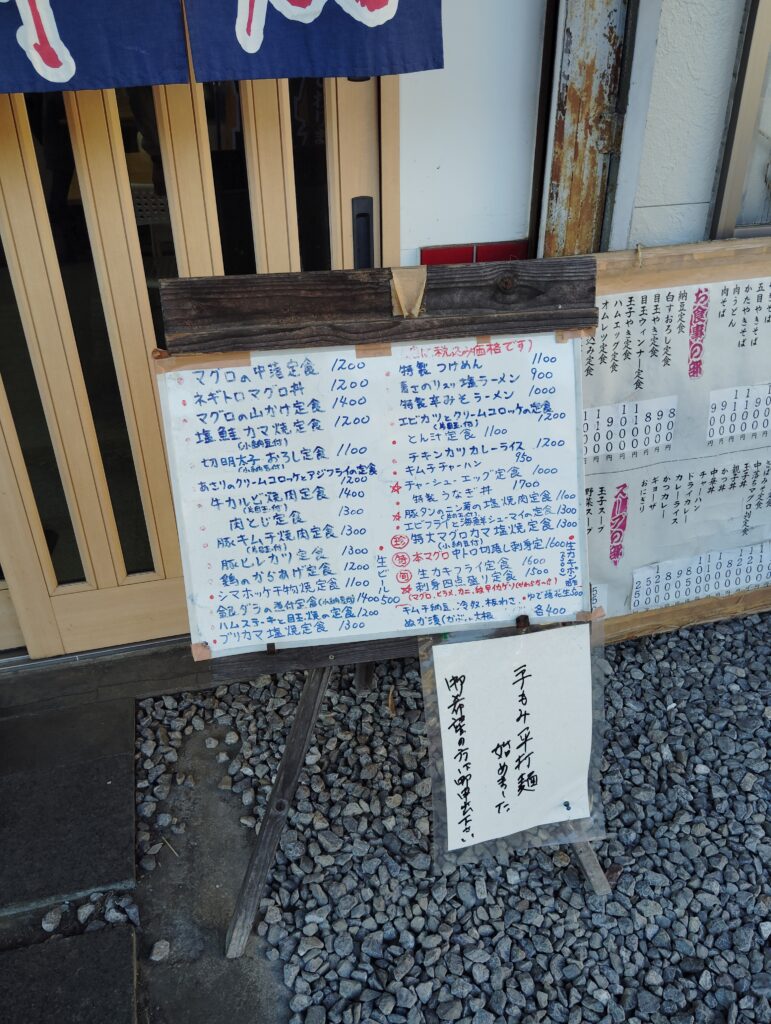 マグロの中落定食 1200
ネギトロマグロ丼 1200
マグロの山かけ定食 1400
塩鮭カマ焼定食 1200
(小納豆付)
切明太子おろし定食 1100
(小納豆付)
あさりのクリームコロッケとアジフライの定食 1200
牛カルビ焼肉定食 1400
(目玉付)
肉とじ定食 1300
豚キムチ焼肉定食 1300
(目玉付)
豚ヒレカツ定食 1300
鶏のからあげ定食 1200
シマホッケ干物焼定食 1100
銀ダラの煮付定食(小納豆付) 1400
ハムステーキと目玉焼の定食 1200
ブリカマ塩焼定食 1300
生ビール 500
税込み価格です)
特製つけめん 1100
塩ラーメン 900
特製辛みそラーメン 1000
エビカツとクリームコロッケの定食 1200
(目玉付)
とん汁定食 1100
チキンカツカレーライス 1200
キムチチャーハン 950
チャーシューエッグ定食 1000
特製うなぎ丼 1700
豚タンのニンニク塩焼肉定食 1100
エビフライと海鮮シューマイの定食 1300
珍 特大マグロカマ塩焼定食 1300
特 本マグロ中トロ切落し刺身定 1600
旬 生カキフライ定食 1600
刺身四点盛り定食 1500
ゆで落花生 500
キムチ納豆、冷奴、板わさ、
ぬか漬 各400
手もみ平打麺
始めました
御希望の方は御申出下さい
お食事の部
納豆定食
白すおろし定食
目玉やき定食
目玉ウィンナー定食
玉子やき定食
ハムエッグ定食
オムレツ定食
五目やきそば
かたやきそば
肉うどん
肉そば
中落ちマグロ刺定食
玉子丼
親子丼
かつ丼
中華丼
チャーハン
ドライカレー
カレーライス
かつカレー
ギョーザ
おにぎり
スープの部
玉子スープ
野菜スープ